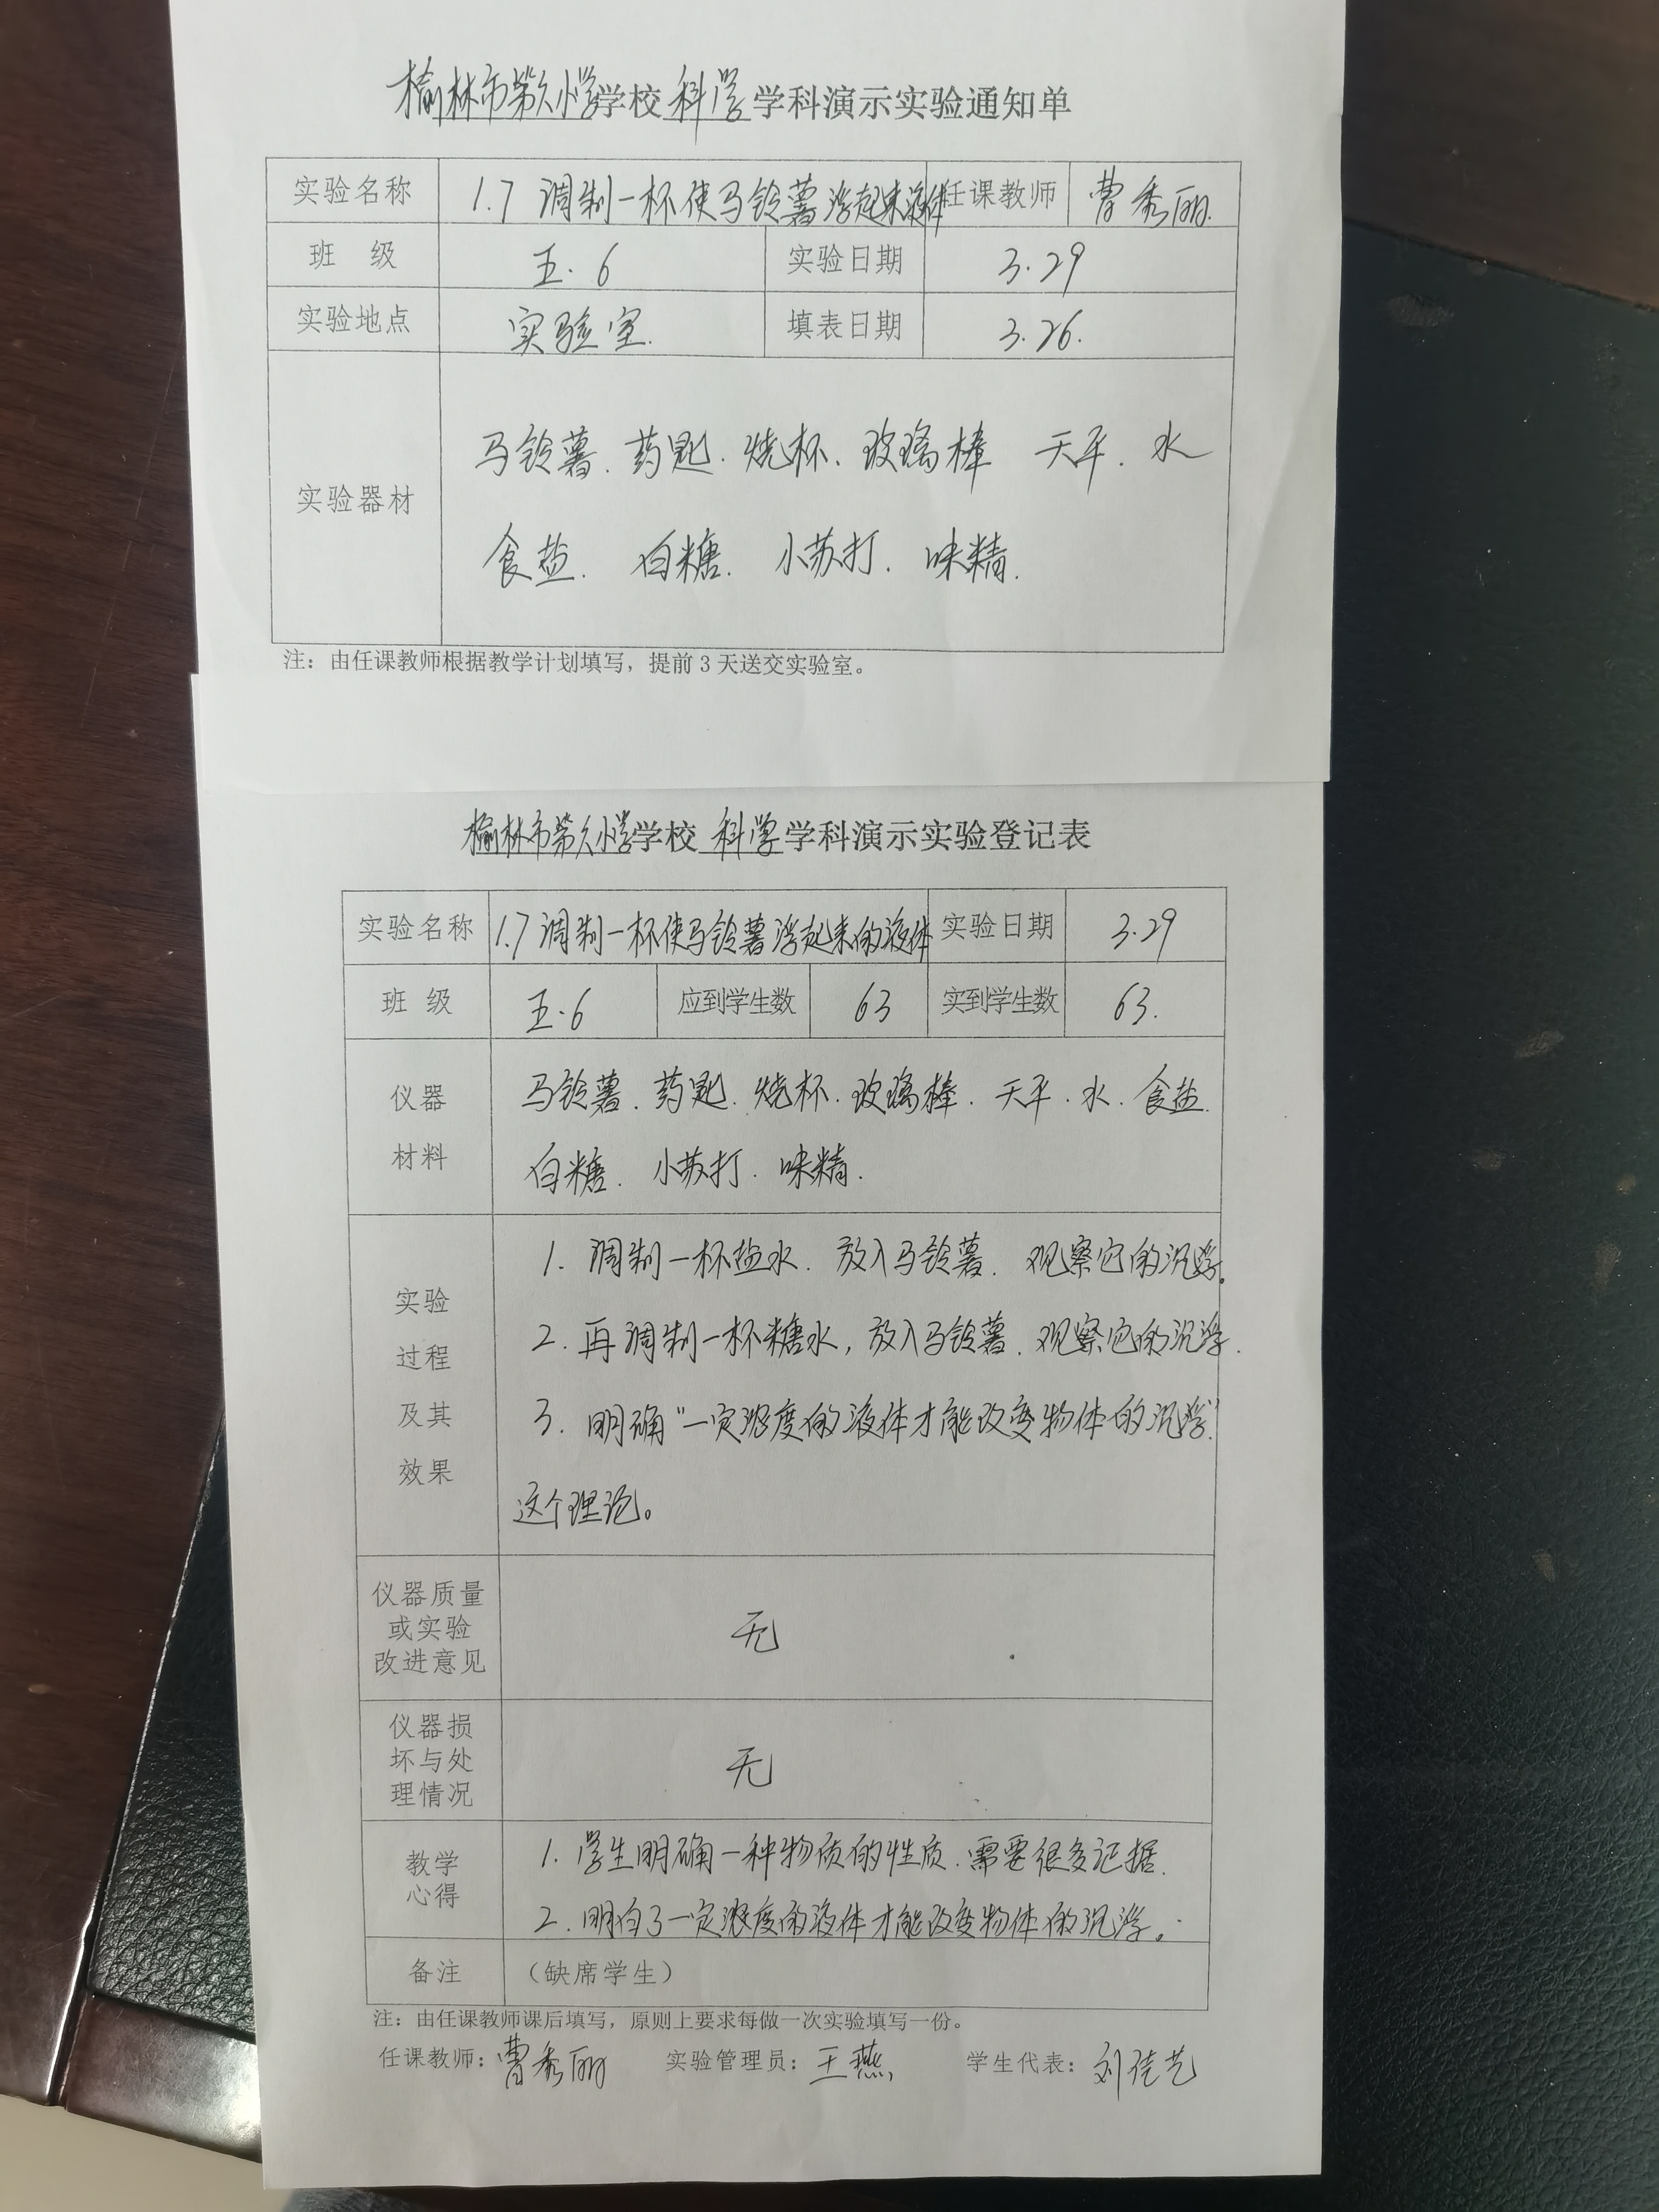 榆林市第九小学学校 科学 学科演示实验通知单
实验名称 1.7 调制一杯使马铃薯浮起来液体 任课教师 曹秀丽
班 级 五.6 实验日期 3.29
实验地点 实验室. 填表日期 3.26.
实验器材
马铃薯. 药匙. 烧杯. 玻璃棒 天平. 水
食盐. 白糖. 小苏打. 味精.
注：由任课教师根据教学计划填写，提前3天送交实验室。
榆林市第九小学学校 科学 学科演示实验登记表
实验名称 1.7 调制一杯使马铃薯浮起来的液体 实验日期 3.29
班 级 五.6 应到学生数 63 实到学生数 63.
仪器
材料
马铃薯. 药匙. 烧杯. 玻璃棒. 天平. 水. 食盐.
白糖. 小苏打. 味精.
实验
过程
及其
效果
1. 调制一杯盐水. 放入马铃薯. 观察它的沉浮.
2. 再调制一杯糖水, 放入马铃薯. 观察它的沉浮.
3. 明确“一定浓度的液体才能改变物体的沉浮”
这个理论。
仪器质量
或实验
改进意见
无
仪器损
坏与处
理情况
无
教学
心得
1. 学生明确一种物质的性质. 需要很多证据.
2. 明白了一定浓度的液体才能改变物体的沉浮。
备注 （缺席学生）
注：由任课教师课后填写，原则上要求每做一次实验填写一份。
任课教师：曹秀丽 实验管理员：王燕 学生代表：刘佳艺